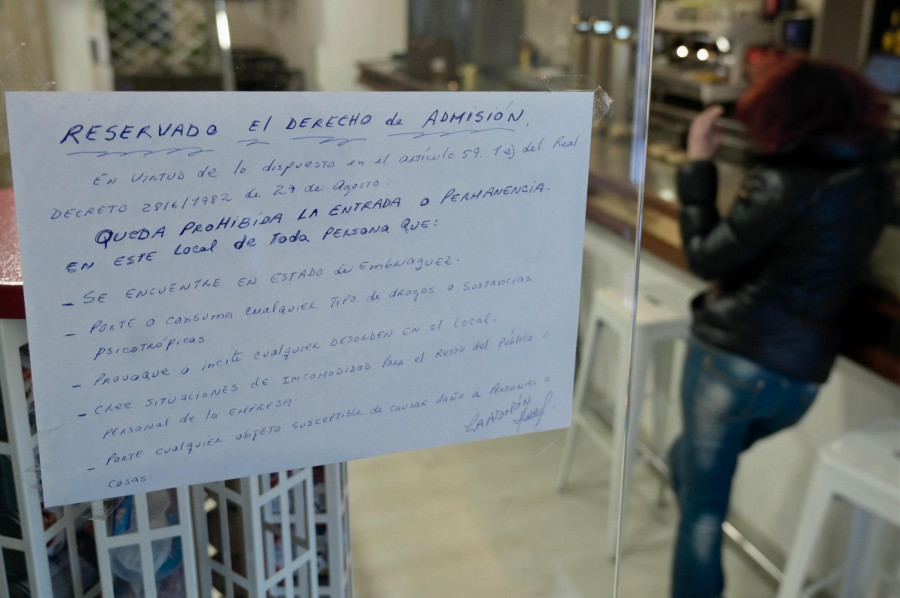 RESERVADO El DERECHO de ADMISIÓN.
EN VIRTUD de lo dispuesto en el artículo 59. 1 e) del Real
DECRETO 2816/1982 de 27 de Agosto.
QUEDA PROHIBIDA LA ENTRADA o PERMANENCIA.
EN ESTE Local de Toda PERSONA QUE:
- SE ENCUENTRE EN ESTADO de EmbRIAGUEZ.
- PORTE O CONSUMA CUALQUIER TIPO de drogas o SUSTANCIAS
psicotrópicas.
- PROVOQUE o incite cualquier DESORDEN EN el local.
- CREE SITUACIONES DE INCOMODIDAD PARA el RESTO del Público o
PERSONAL de la EMPRESA.
- PORTE cualquier objeto susceptible de causar daño a PERSONAS o
cosas.